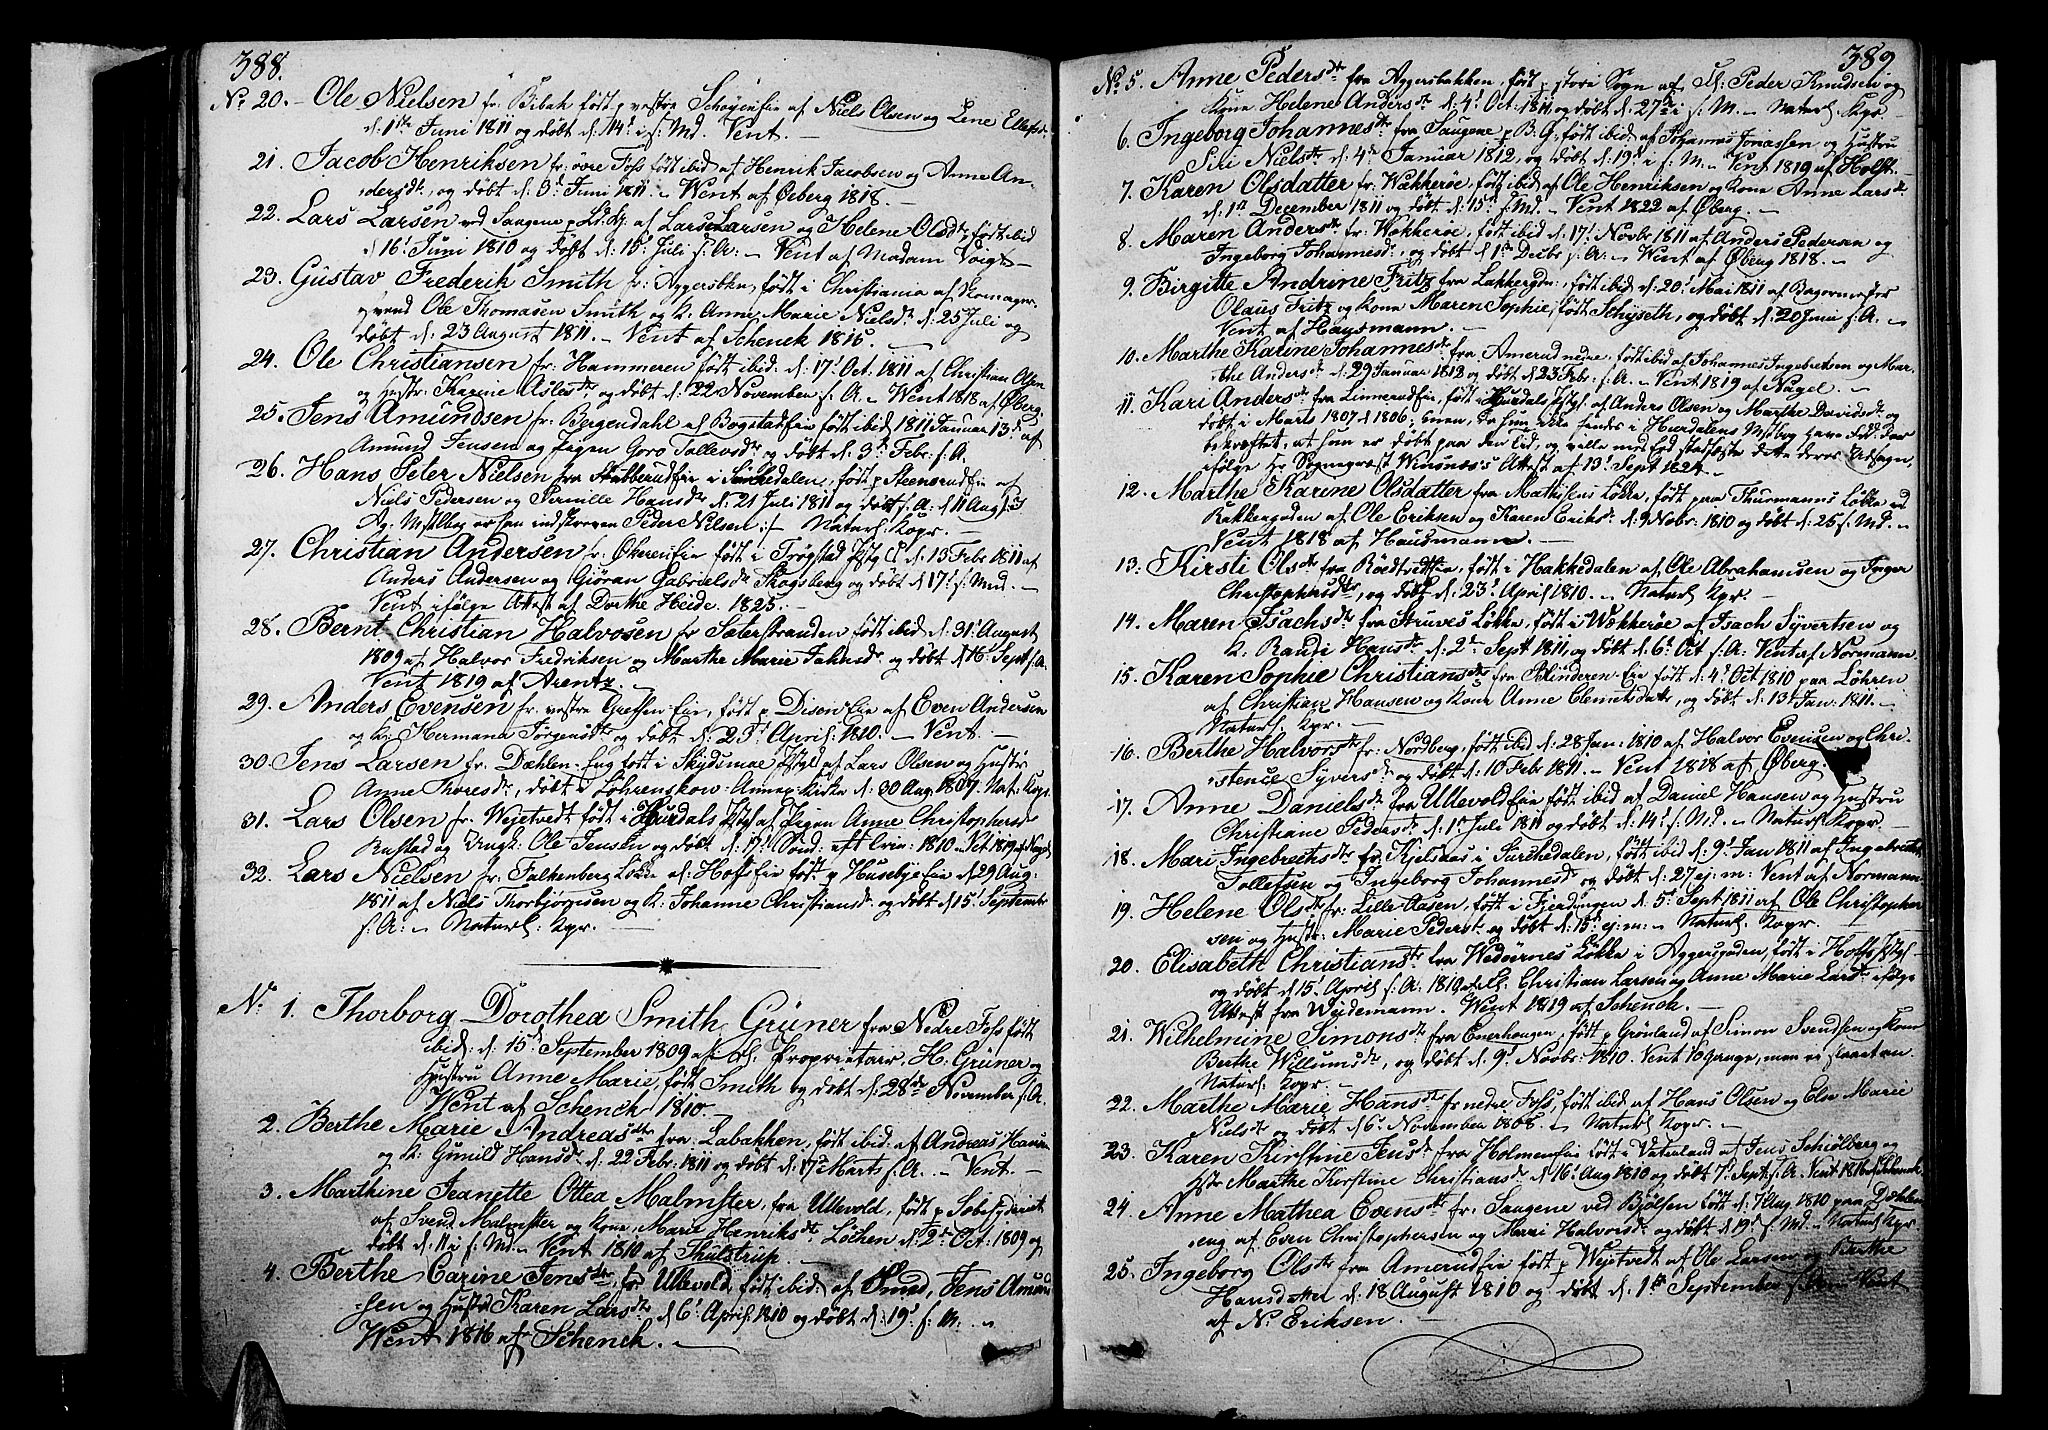 388.
No 20. - Ole Nielsen fr. Bibak født p. vestre Schøyenfie af Niels Olsen og Lene Ellefsdr
d. 1ste Juni 1811 og døbt d. 14d i s. Md. Vent. -
21. Jacob Henriksen fr. øvre Foss født ibid. af Henrik Jacobsen og Anne An-
dersdr, og døbt d. 3d Juni 1811. - Vent af Øeberg 1818. -
22. Lars Larsen ved Saugene p. af Lars Larsen og Helene Olsdr, født ibid
d. 16d Juni 1810 og døbt d: 15d Juli s. A: - Vent af Madam Voigt -
23. Gustav Frederik Smith fr: Aggersbkn, født i Christiania af
Ole Thomasen Smith og K. Anne Marie Nielsdr d: 25 Juli og
døbt d. 23 August 1811. - Vent af Schenck 1816. -
24. Ole Christiansen fr: Hammeren født ibid. d: 17d Oct. 1811 af Christian Olsen
og Hustr: Karine Aslesdr, og døbt d: 22 November s. A. - Vent 1818 af Øberg.
25. Jens Amundsen fr. Bergendahl af Bogstadfie født ibid. 1811 Januar 13d af
Amund Jensen og Pigen Goro Tollevsdr og døbt d. 3d Febr. s. A.
26. Hans Peter Nielsen fra Stubberudfie i Sørkedalen, født p. Steensrudfie af
Niels Pedersen og Pernille Hansdr d. 21 Juli 1811 og døbt s. A: d. 11 Aug:
Ag: Mstlbog er han indskreven Peder Nielsen :/- Naturl. Kopr.
27. Christian Andersen fr. Økerenfie født i Trøgstad Pstgl d. 13 Febr 1811 af
Anders Andersen og Giøran Gabrielsdr Skogsberg og døbt d 17d s. Md. -
Vent ifølge Attest af Dorthe Heide 1825. -
28. Bernt Christian Halvosen fr Sæterstranden født ibid d: 31d August
1809 af Halvor Fredriksen og Marthe Marie Jahnsdr og døbt d 16d Sept s. A.
Vent 1819 af Arentz. -
29. Anders Evensen fr. vestre Grefsen Eie, født p. Disen Eie af Even Andersen
og K: Hermana Jørgensdr og døbt d: 23d April: 1810. - Vent. -
30. Jens Larsen fr. Dæhlen-Eng født i Skydsmoe Pstgl af Lars Olsen og Hustr
Anne Thoresdr, døbt i Løhrenskow Annex-Kirke d: 30 Aug. 1807. Nat: Kopr.
31. Lars Olsen fr. Wejetvedt født i Hurdals Pstgl af Pigen Anne Christophersdr
Rustad og Ole Jensen og døbt d: 17d Sønd: eft 1810 - Vent 1819 af Nagel
32. Lars Nielsen fr. Falkenberg Løkke af Hoffsfie født p. Husebye fie d. 29 Aug:
1811 af Niels Thorbjørnsen og K: Johanne Christiansdr og døbt d 15d September
s. A: - Naturl: Kpr. -
No 1. Thorborg Dorothea Smith Grüner fra Nedre Foss født
ibid: d: 15d September 1809 af Hr. Proprietair. H: Grüner og
Hustru Anne Marie, født Smith og døbt d: 28de November s. A.
Vent af Schenck 1810. -
2. Berthe Marie Andreasdtr fra Labakken, født ibid: af Andreas Hansen
og K: Gunild Hansdr d. 22 Febr. 1811 og døbt d. 17d Marts s. A. - Vent. -
3. Marthine Jeanette Ottea Malmster, fra Ullevold, født p. Sobesyderiet
af Svend Malmster og Kone, Marie Henriksdr Løchen d: 2de Oct: 1809 og
døbt d. 11 i s. Md. - Vent 1810 af Thulstrup.
4. Berthe Carine Jensdtr, fr. Ullevold, født ibid: af Smed, Jens Amund-
sen og Hustr Karen Larsdtr d: 6d April 1810 og døbt d: 19d s. M. -
Vent 1816 af Schenck. -
389
No. 5. Anne Pedersdtr fra Aggersbakken, født p. store Sogn af Sl. Peder Knudsen og
Kone Helene Andersdr d. 4d Oct: 1811 og døbt d: 27de i s. M. - Naturl. Kpr -
6. Ingeborg Johannesdtr fra Saugene p. B. G. født ibid. af Johannes Jonassen, og Hustru
Siri Nielsdtr d: 4d Januar 1812, og døbt d: 19d i s. M. - Vent 1819 af Holst.
7. Karen Olsdatter fr: Wækkerøe, født ibid af Ole Henriksen og Kone Anne Larsdr
d. 1ste December 1811 og døbt d. 15d s. Md. - Vent 1822 af Øberg. -
8. Maren Andersdtr fr: Wækkerøe, født ibid d: 17d Novbr 1811 af Anders Pedersen og
Ingeborg Johannesdr, og døbt d. 1ste Decbr s. A: - Vent af Øberg 1818. -
9. Birgitte Andrine Fritz fra Lakkergdn: født ibid. d: 20d Mai 1811 af Bagermester
Olaus Fritz og Kone Maren Sophie, født Schyseth, og døbt d: 20 Juni s. A. -
Vent af Hausmann. -
10. Marthe Karine Johannesdtr fra Amerud nedre, født ibid af Johannes Ingebretsen og Mar-
the Andersdr d: 29 Januar 1812 og døbt d 23 Febr. s. A. - Vent 1819 af Nagel. -
11. Kari Andersdtr fra Linnerudfie, født i Hurdals Pstgl. af Anders Olsen og Marthe Davidsdr og
døbt i Marts 1807 el 1806; men, da hun ikke fandes i Hurdalens Mstbog have Fdd. der
bekræftet, at hun er døbt paa den tid, og ville med Eed stadfæste dette deres Udsagn,
ifølge Hr Sognepræst Winsnæs's Attest af 13d Sept 1824. -
12. Marthe Karine Olsdatter fra Mathisens Løkke, født paa Thurmanns Løkke ved
Lakkergaden af Ole Eriksen og Karen Eriksdr d. 9 Nobr. 1810 og døbt d: 25 s. Md. -
Vent 1818 af Hausmann. -
13: Kirsti Olsdtr fra Rødtvedtfie, født i Hakkedalen af Ole Abrahamsen og Inger
Christophersdtr, og døbt d: 23d April 1810. - Naturl Kpr. -
14. Maren Isachsdtr fra Struves Løkke, født i Wækkerøe af Isach Syvertsen og
K. Randi Hansdtr d. 2de Sept 1811, og døbt d: 6d Oct s. A: Vent af Normann.
15. Karen Sophie Christiansdtr fra Blinderen-Eie født d: 4d Oct 1810 paa Løhren
af Christian Hansen og Kone Anne Clemetsdatter, og døbt d: 13d Jan: 1811. -
Naturl. Kpr. -
16. Berthe Halvorsdtr fr: Nordberg, født ibid d: 28 Jan: 1810 af Halvor Evensen og Chri-
stence Syversdr og døbt d: 10 Febr 1811. - Vent 1818 af Øberg.
17. Anne Danielsdtr fra Ullevoldfie født ibid af Daniel Hansen og Hustru
Christiane Pedersdr d. 1ste Juli 1811 og døbt d: 14d s. Md. - Naturl. Kopr. -
18. Mari Ingebrechtsdtr fr. Kjelsaas i Sørchedalen, født ibid d: 9d Jan 1811 af Ingebrecht
Tollefsen og Ingeborg Johannesdr og døbt d. 27 ej: m: Vent af Normann.
19. Helene Olsdtr fr. Lille-Aasen, født i Fjerdingen d: 5d Sept 1811 af Ole Christopher-
sen og Hustr: Marie Pedersdr og døbt d: 15d ej: m: - Naturl. Kopr. -
20. Elisabeth Christiansdtr fra Wedøernes Løkke i Aggersgaden, født i Hoffs Pstgl -
og døbt d 15d April s. A: 1810 af Sl. Christian Larsen og Anne Marie Larsdr ifølge
Attest fra Wejdemann. Vent 1819 af Schenck. -
21. Wilhelmine Simonsdtr fra Enerhaugen, født p. Grønland af Simon Svendsen og Kone
Berthe Willumsdr, og døbt d. 9d Novbr: 1810. Vent 10 gange, men ei slaaet an.
Naturl. Kopr. -
22. Marthe Marie Hansdtr fr. nedre Foss, født ibid af Hans Olsen og Else Marie
Nielsdr og døbt d. 6d November 1808. - Naturl Kopr. -
23. Karen Kirstine Jensdtr fra Holmenfie født i Vaterland af Jens Schiølberg og
Hstr Marthe Kirstine Christiansdr d 16d Aug 1810 og døbt 7d Sept: s. A. Vent 1816 af Schenck.
24. Anne Mathea Evensdtr fr: Saugene ved Bjølsen født d. 7 Aug 1810 paa Dæhlen
eng af Even Christophersen og Mari Halvorsdr og døbt d. 19d s. Md. - Naturl Kpr.
25. Ingeborg Olsdtr fra Amerudfie født p. Wejtvedt af Ole Larsen og Berthe
Hansdatter d: 18 August 1810 og døbt d. 1ste September Vent
af N. Eriksen. -